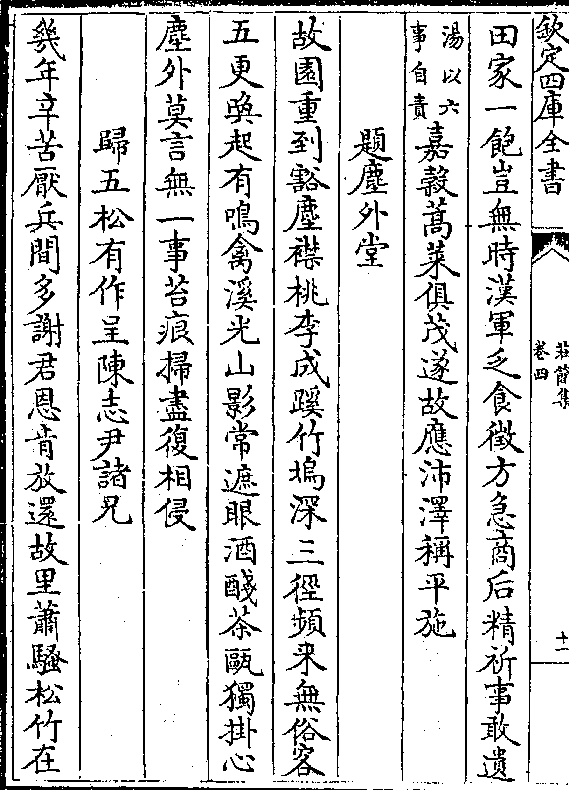 欽定四庫全書
莊簡集
卷四
十一
田家一飽豈無時漢軍乏食徵方急商后精祈事敢遺
湯以六
事自責
嘉穀蒿萊俱茂遂故應沛澤稱平施
題塵外堂
故園重到豁塵襟桃李成蹊竹塢深三徑頻来無俗客
五更喚起有鳴禽溪光山影常遮眼酒醆茶甌獨掛心
塵外莫言無一事苔痕掃盡復相侵
歸五松有作呈陳志尹諸兄
幾年辛苦厭兵間多謝君恩肯放還故里蕭騷松竹在